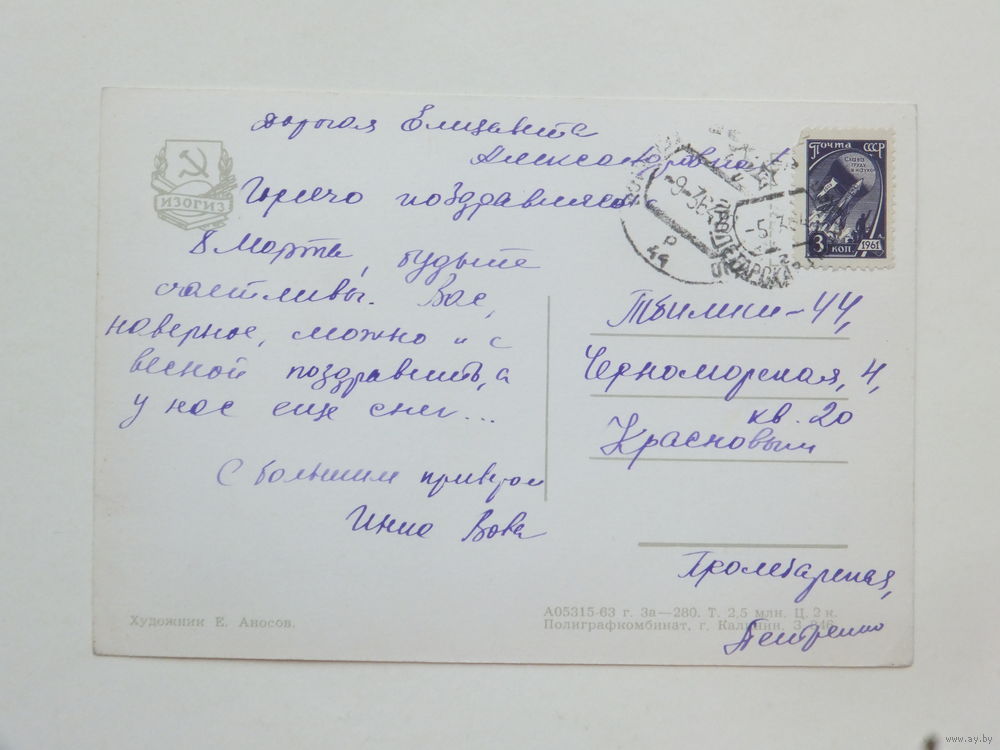 Дорогая Елизавета
Александровна!
Горячо поздравляем с
8 Марта, будьте
счастливы. Вас,
наверное, можно и с
весной поздравить, а
у нас еще снег...
С большим приветом
Инна Вова
ИЗОГИЗ
Художник Е. Аносов.
ПОЧТА СССР
СЛАВА
ТРУДУ
И НАУКЕ
3 КОП. 1961
ПРОЛЕТАРСКАЯ
Тбилиси-44,
Черноморская, 4,
кв. 20
Красновым
Пролетарская,
Петренко
А05315-63 г. За—280. Т. 2,5 млн. Ц. 2 к.
Полиграфкомбинат, г. Калинин. З. 946
www.ay.by